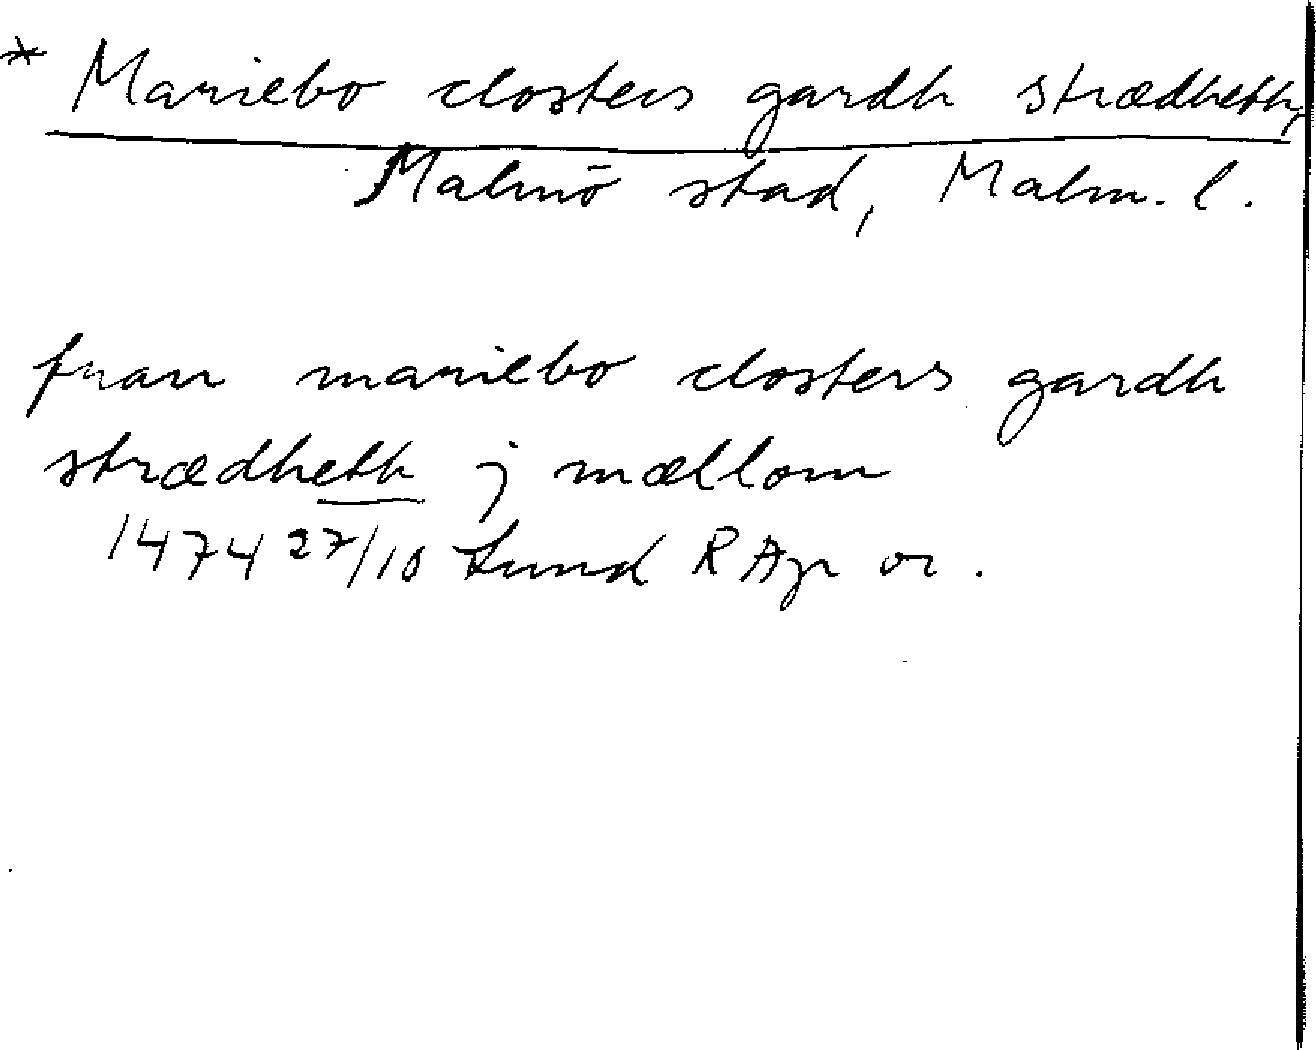 * Mariebo closters gardh strædheth,
Malmö stad, Malm. l.
fran mariebo closters gardh
strædheth j mællom
1474 27/10 Lund RApr or.